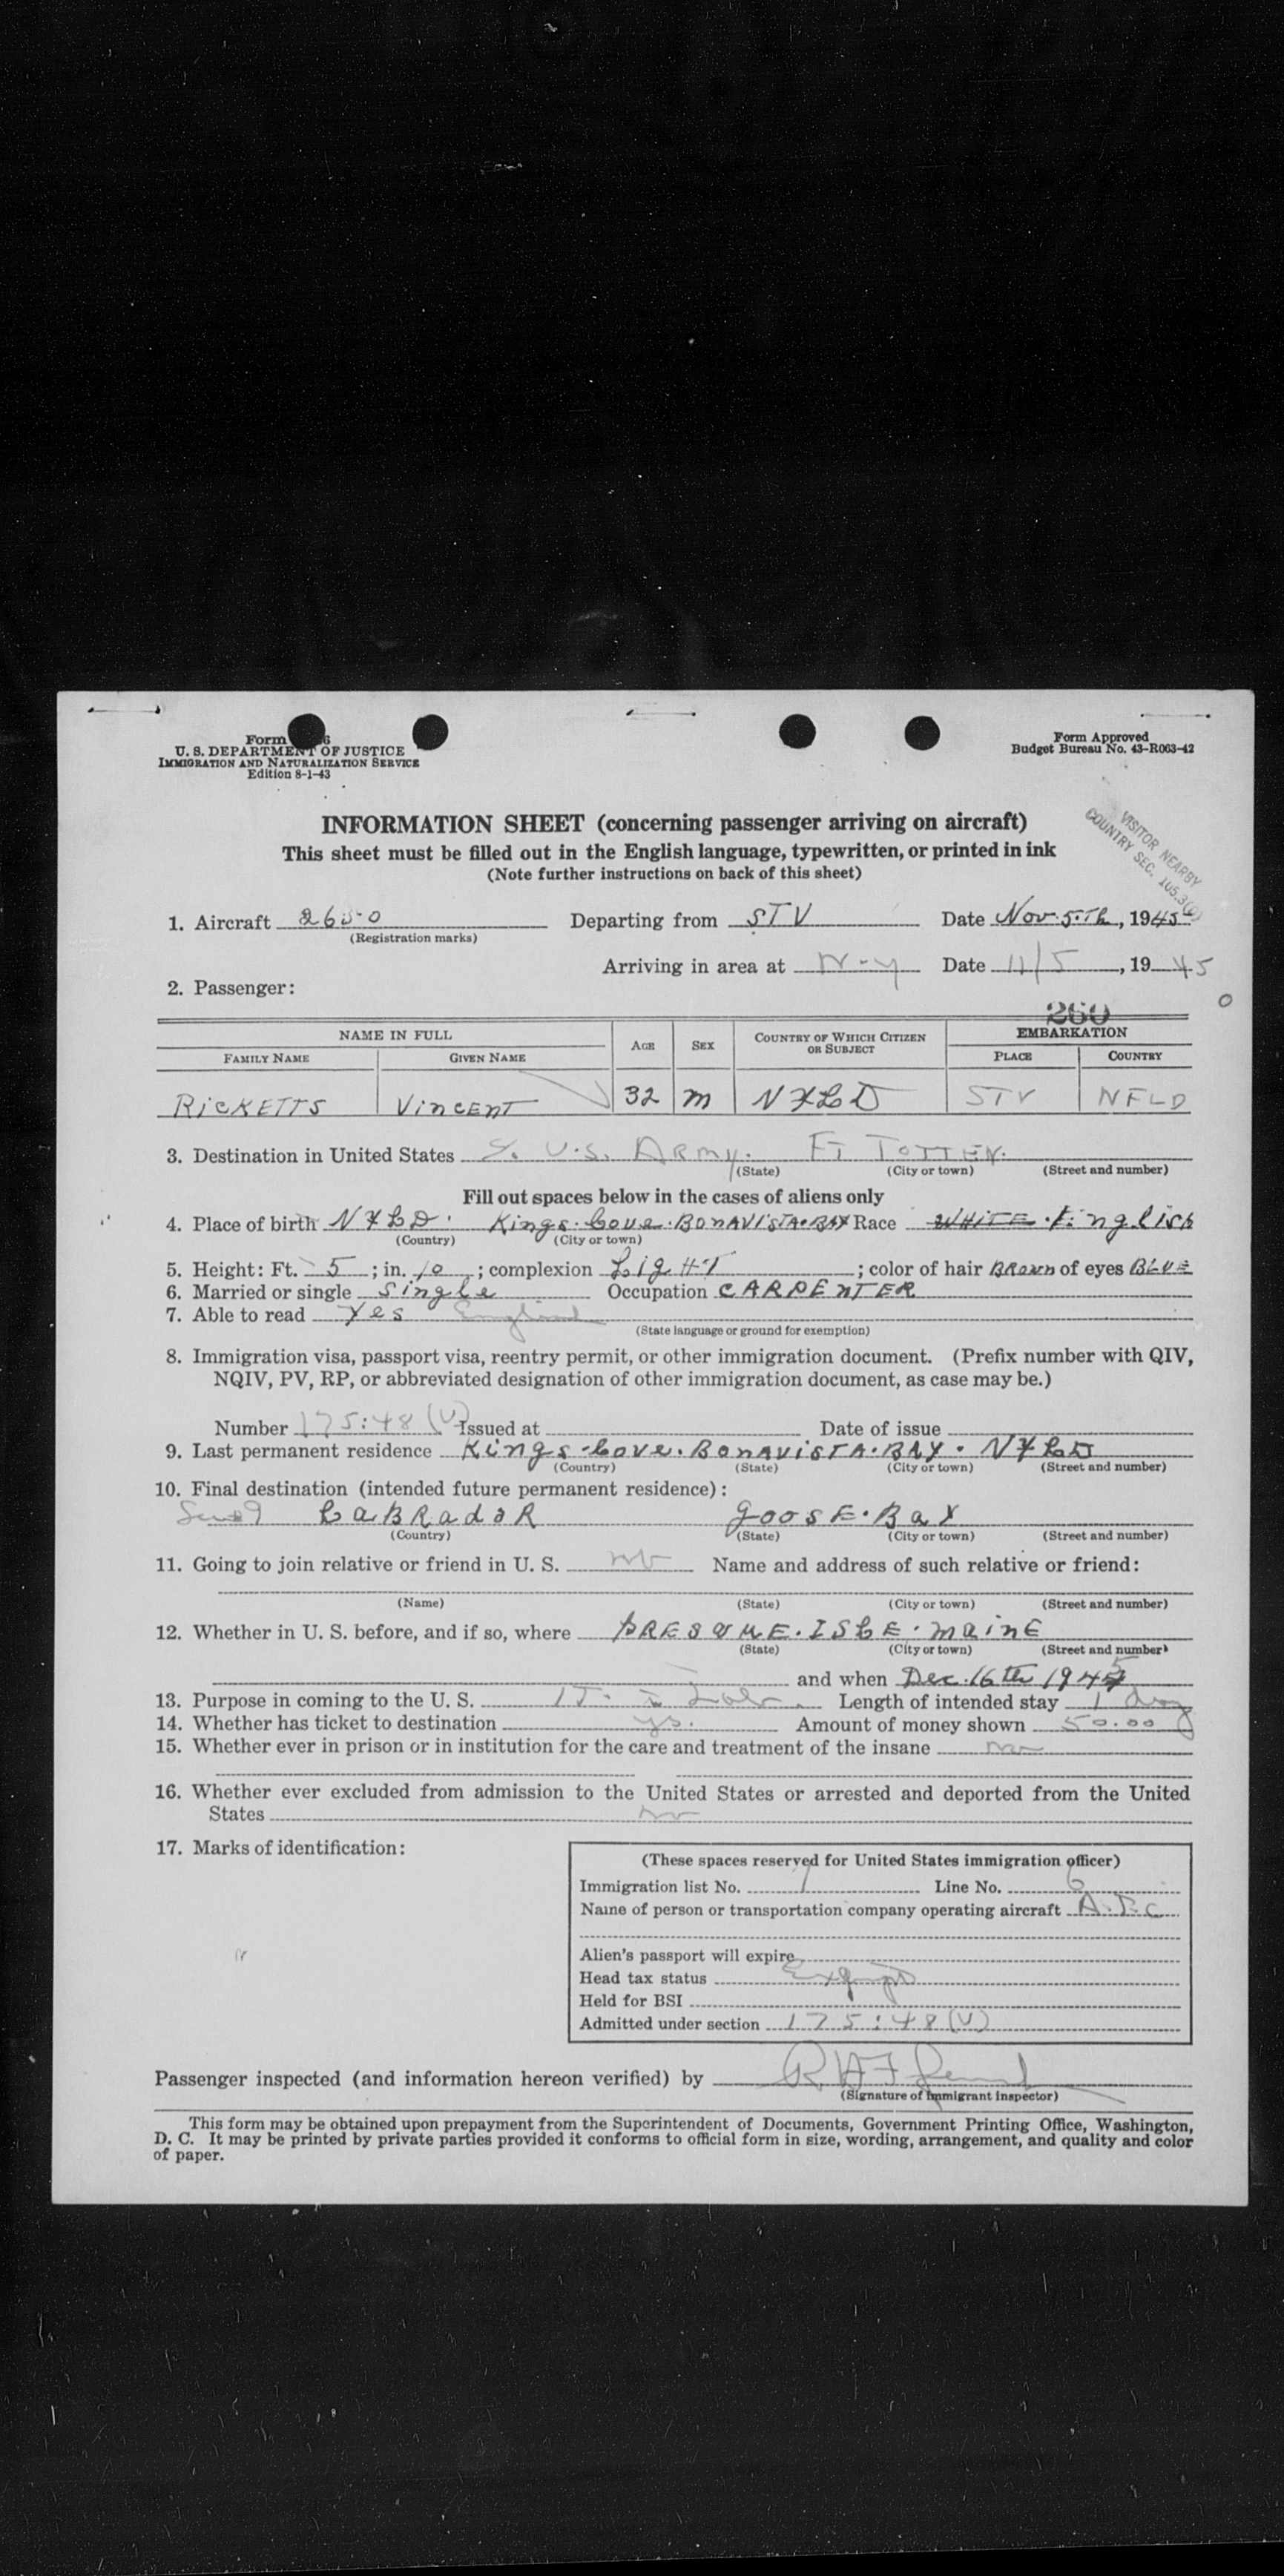 Form
U. S. DEPARTMENT OF JUSTICE
IMMIGRATION AND NATURALIZATION SERVICE
Edition 8-1-43
Form Approved
Budget Bureau No. 43-R063-42
INFORMATION SHEET (concerning passenger arriving on aircraft)
This sheet must be filled out in the English language, typewritten, or printed in ink
(Note further instructions on back of this sheet)
VISITOR NEARBY
COUNTRY SEC. 105.3
1. Aircraft Departing from STV Date Nov. 5.Th, 1945
(Registration marks)
Arriving in area at N-Y Date 11/5, 19 45
2. Passenger:
260
NAME IN FULL AGE SEX COUNTRY OF WHICH CITIZEN OR SUBJECT EMBARKATION
FAMILY NAME GIVEN NAME PLACE COUNTRY
RICKETTS VINCENT 32 M NFLD STV NFLD
3. Destination in United States U.S. ARMY. FT TOTTEN.
(State) (City or town) (Street and number)
Fill out spaces below in the cases of aliens only
4. Place of birth NFLD. Kings. Cove. BONAVISTA. BAY Race WHITE. English
(Country) (City or town)
5. Height: Ft. 5; in. 10; complexion LigHT; color of hair BROWN of eyes BLUE
6. Married or single Single Occupation CARPENTER
7. Able to read Yes
(State language or ground for exemption)
8. Immigration visa, passport visa, reentry permit, or other immigration document. (Prefix number with QIV,
NQIV, PV, RP, or abbreviated designation of other immigration document, as case may be.)
Number 175:48 (V) Issued at Date of issue
9. Last permanent residence Kings. Cove. BONAVISTA. BAY. NFLD
(Country) (State) (City or town) (Street and number)
10. Final destination (intended future permanent residence):
LABRADOR GOOSE. BAY
(Country) (State) (City or town) (Street and number)
11. Going to join relative or friend in U. S. no Name and address of such relative or friend:
(Name) (State) (City or town) (Street and number)
12. Whether in U. S. before, and if so, where PRESQUE. ISLE. MAINE
(State) (City or town) (Street and number)
and when Dec. 16th 194
13. Purpose in coming to the U. S. Length of intended stay 1 day
14. Whether has ticket to destination yes. Amount of money shown 50.00
15. Whether ever in prison or in institution for the care and treatment of the insane no
16. Whether ever excluded from admission to the United States or arrested and deported from the United
States no
17. Marks of identification:
(These spaces reserved for United States immigration officer)
Immigration list No. 1 Line No. 6
Name of person or transportation company operating aircraft A.T.C
Alien's passport will expire
Head tax status Exempt
Held for BSI
Admitted under section 175:48 (V)
Passenger inspected (and information hereon verified) by
(Signature of immigrant inspector)
This form may be obtained upon prepayment from the Superintendent of Documents, Government Printing Office, Washington,
D. C. It may be printed by private parties provided it conforms to official form in size, wording, arrangement, and quality and color
of paper.